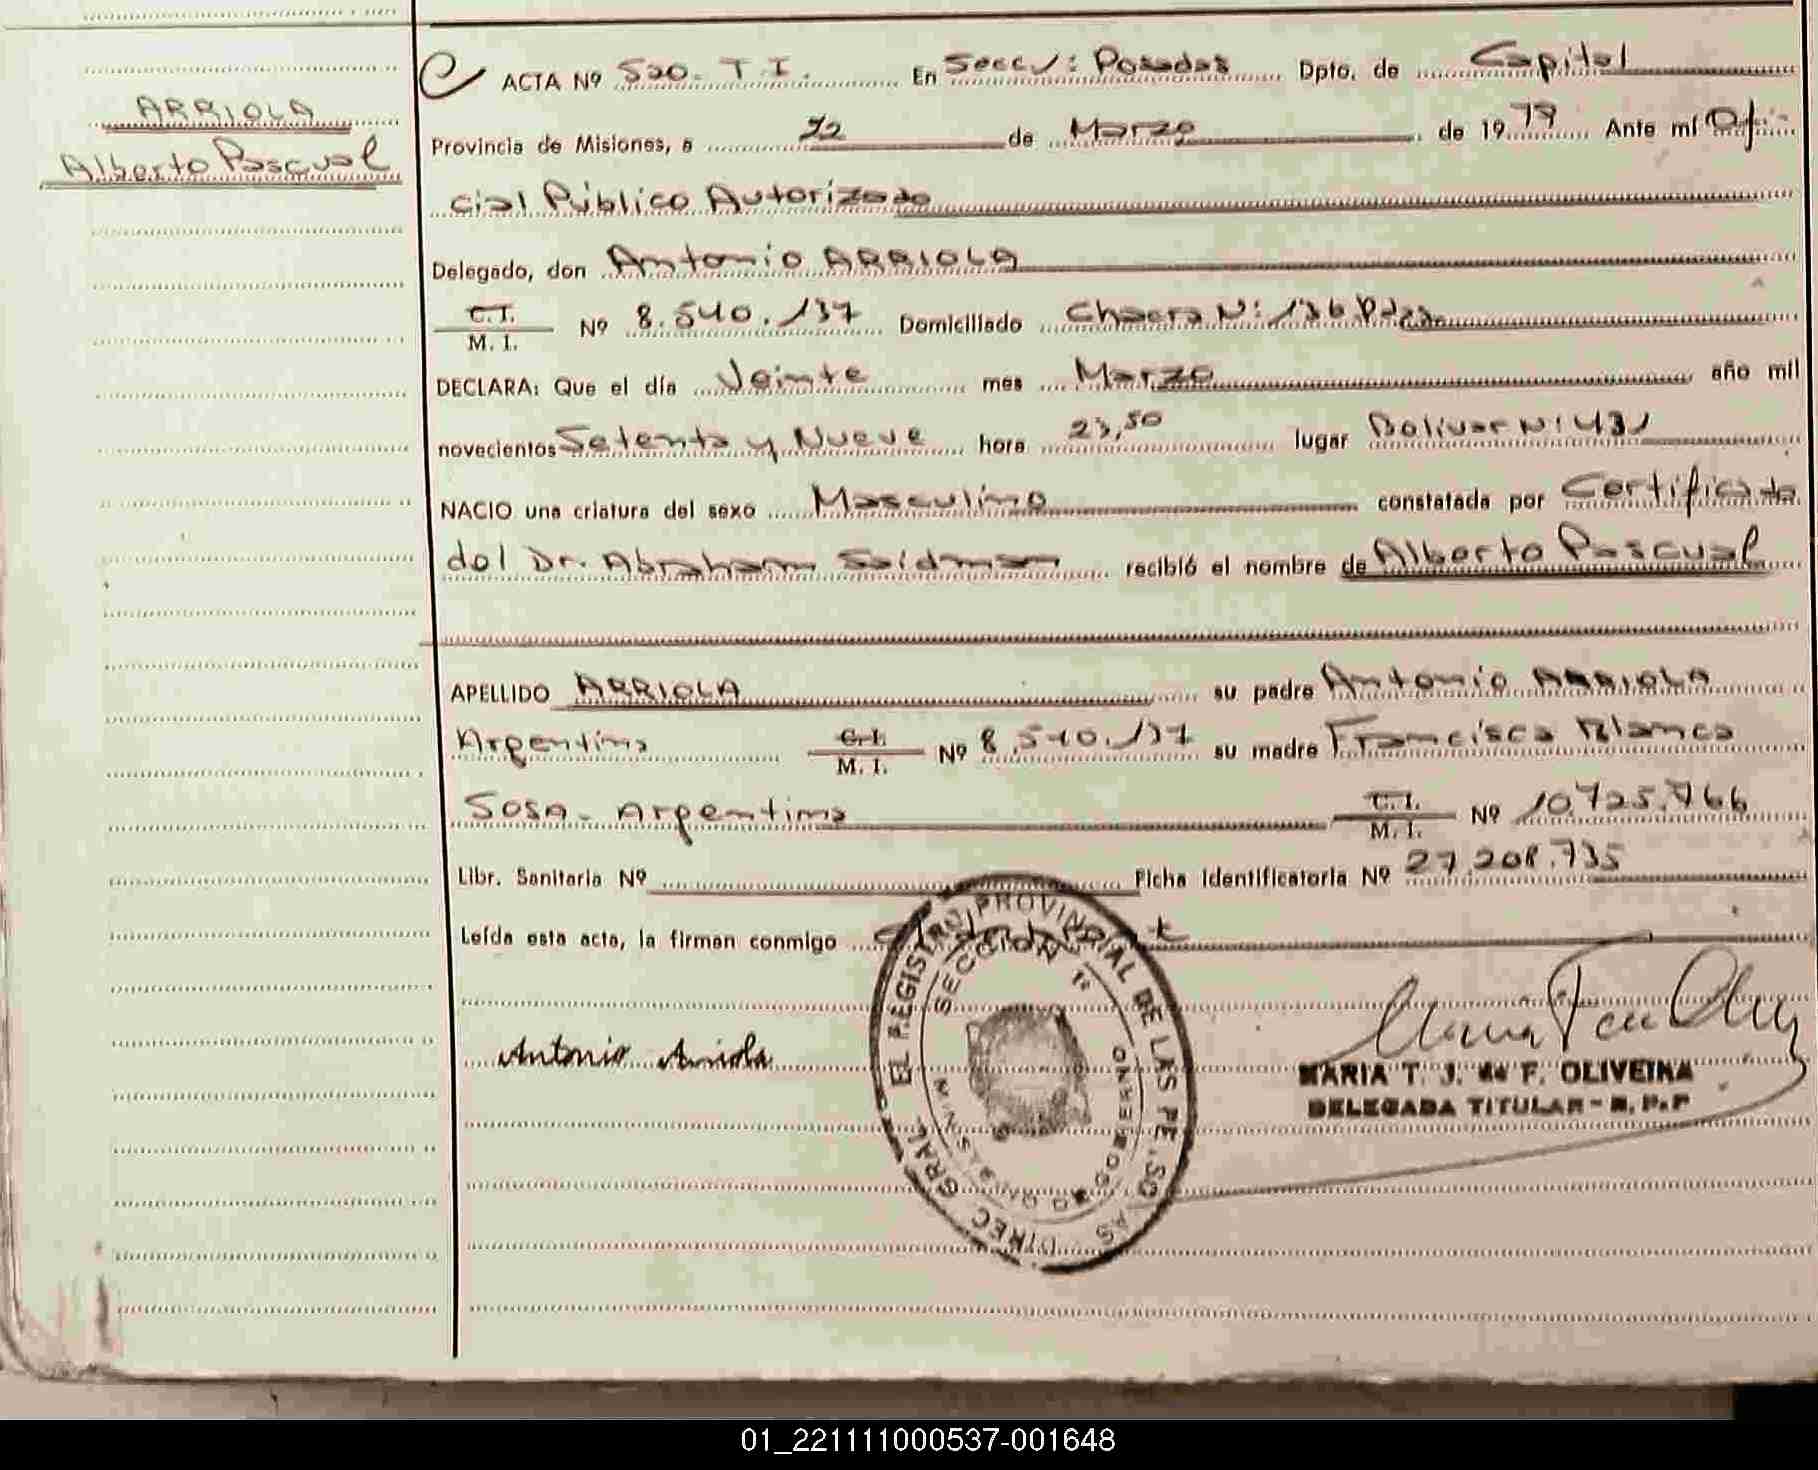 ARRIOLA
Alberto Pascual
ACTA Nº 520. T. I. En Secc 1/: Posadas Dpto. de Capital
Provincia de Misiones, a 22 de Marzo de 1979 Ante mí Ofi-
cial Público Autorizado
Delegado, don Antonio ARRIOLA
C.I. / M. I. Nº 8.540.137 Domiciliado Chacra Nº: 136 Pdas.
DECLARA: Que el día Veinte mes Marzo año mil
novecientos Setenta y Nueve hora 23,50 lugar Bolivar Nº: 431
NACIO una criatura del sexo Masculino constatada por Certificado
del Dr. Abraham Saidman recibió el nombre de Alberto Pascual
APELLIDO ARRIOLA su padre Antonio ARRIOLA
Argentino C.I. / M. I. Nº 8.540.137 su madre Francisca Blanca
SOSA - Argentina C.I. / M. I. Nº 10.725.766
Libr. Sanitaria Nº Ficha Identificatoria Nº 27.208.735
Leída esta acta, la firman conmigo
DIREC GRAL EL REGISTRO PROVINCIAL DE LAS PE SO AS
SECCION 1ª
MINISTERIO DE GOBIERNO
Antonio Arriola
MARIA T. J. de F. OLIVEIRA
DELEGADA TITULAR - R. P. P
01_221111000537-001648